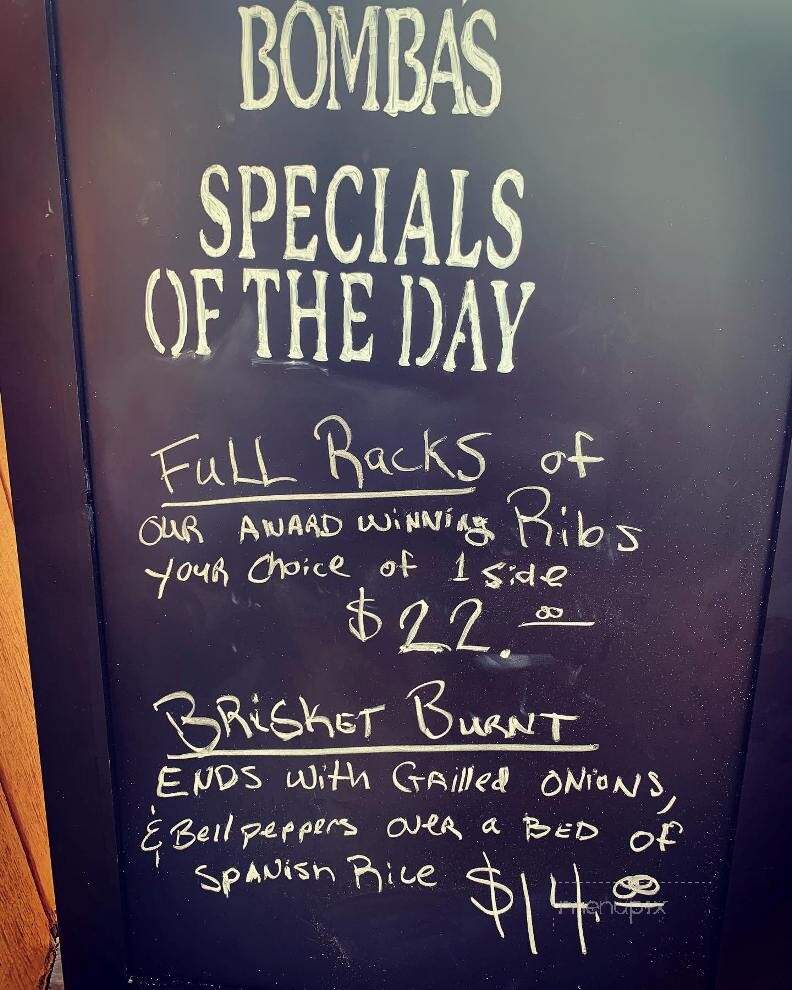 BOMBA'S
SPECIALS
OF THE DAY
FULL Racks of
OUR AWARD WINNING Ribs
YOUR Choice of 1 Side
$22.00
BRISKET BURNT
ENDS With GRilled ONIONS,
& Bell peppers OVER a BED of
SPANISH Rice $14.00
menupix